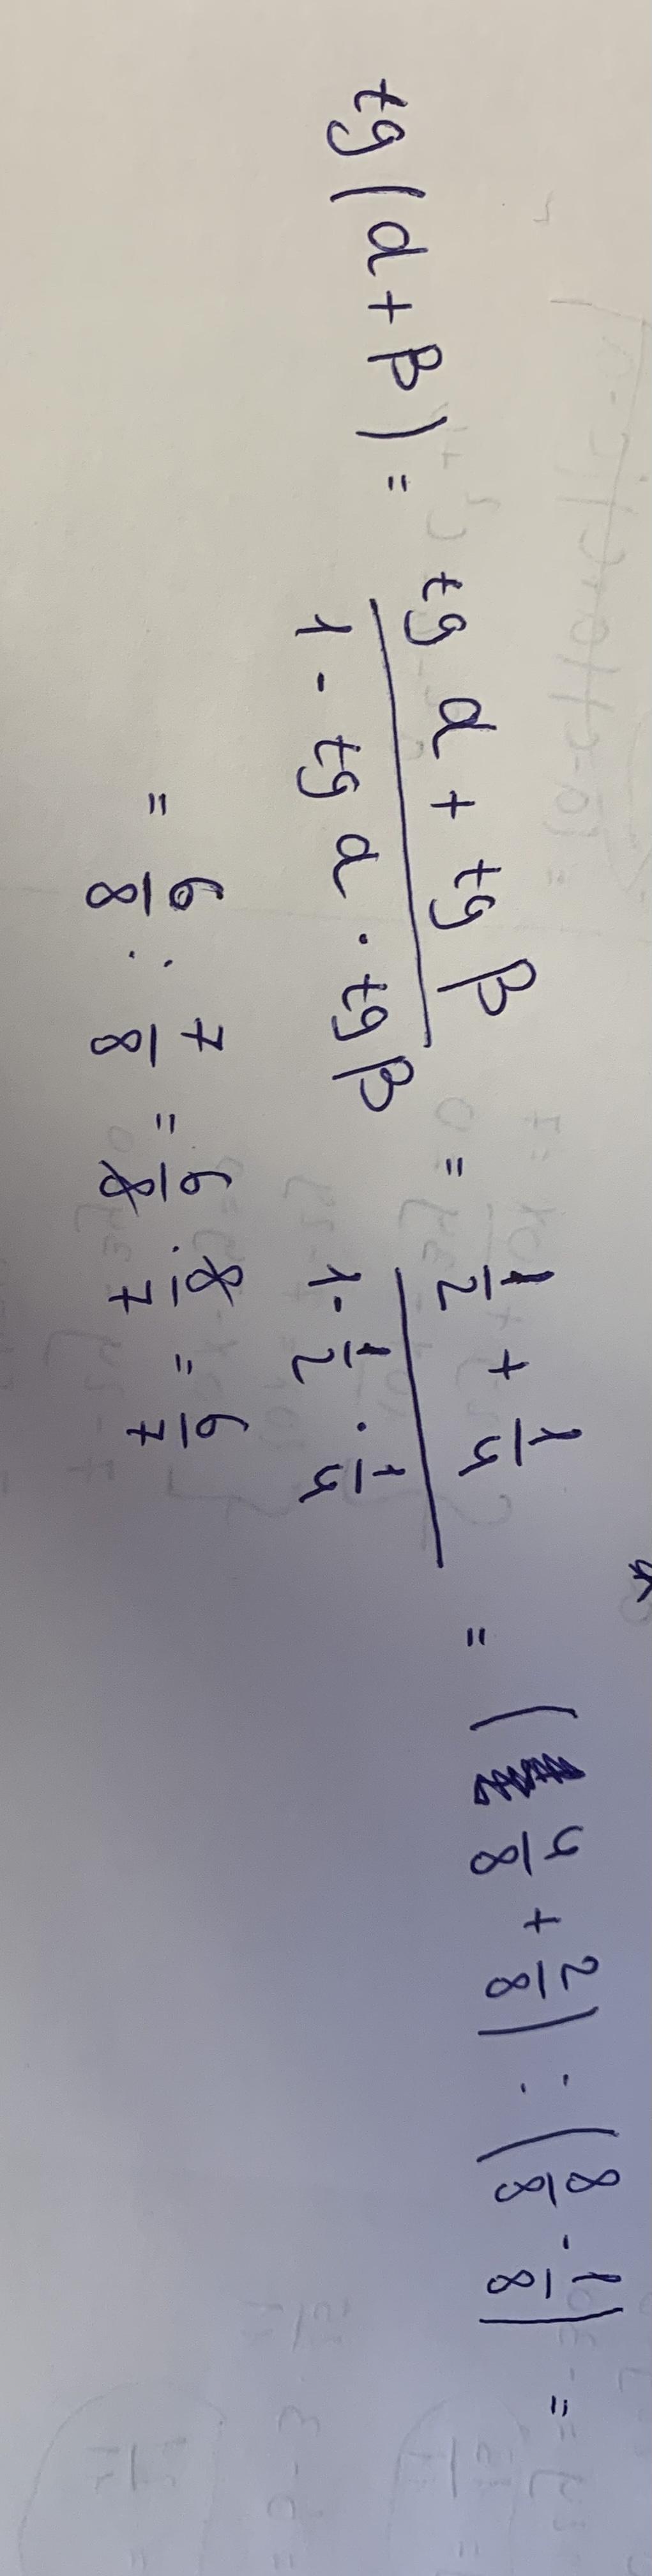 tg(α+β) = (tg α + tg β)/(1 - tg α · tg β) = (1/2 + 1/4)/(1 - 1/2 · 1/4) = (4/8 + 2/8) : (8/8 - 1/8) =
= 6/8 : 7/8 = 6/8 · 8/7 = 6/7